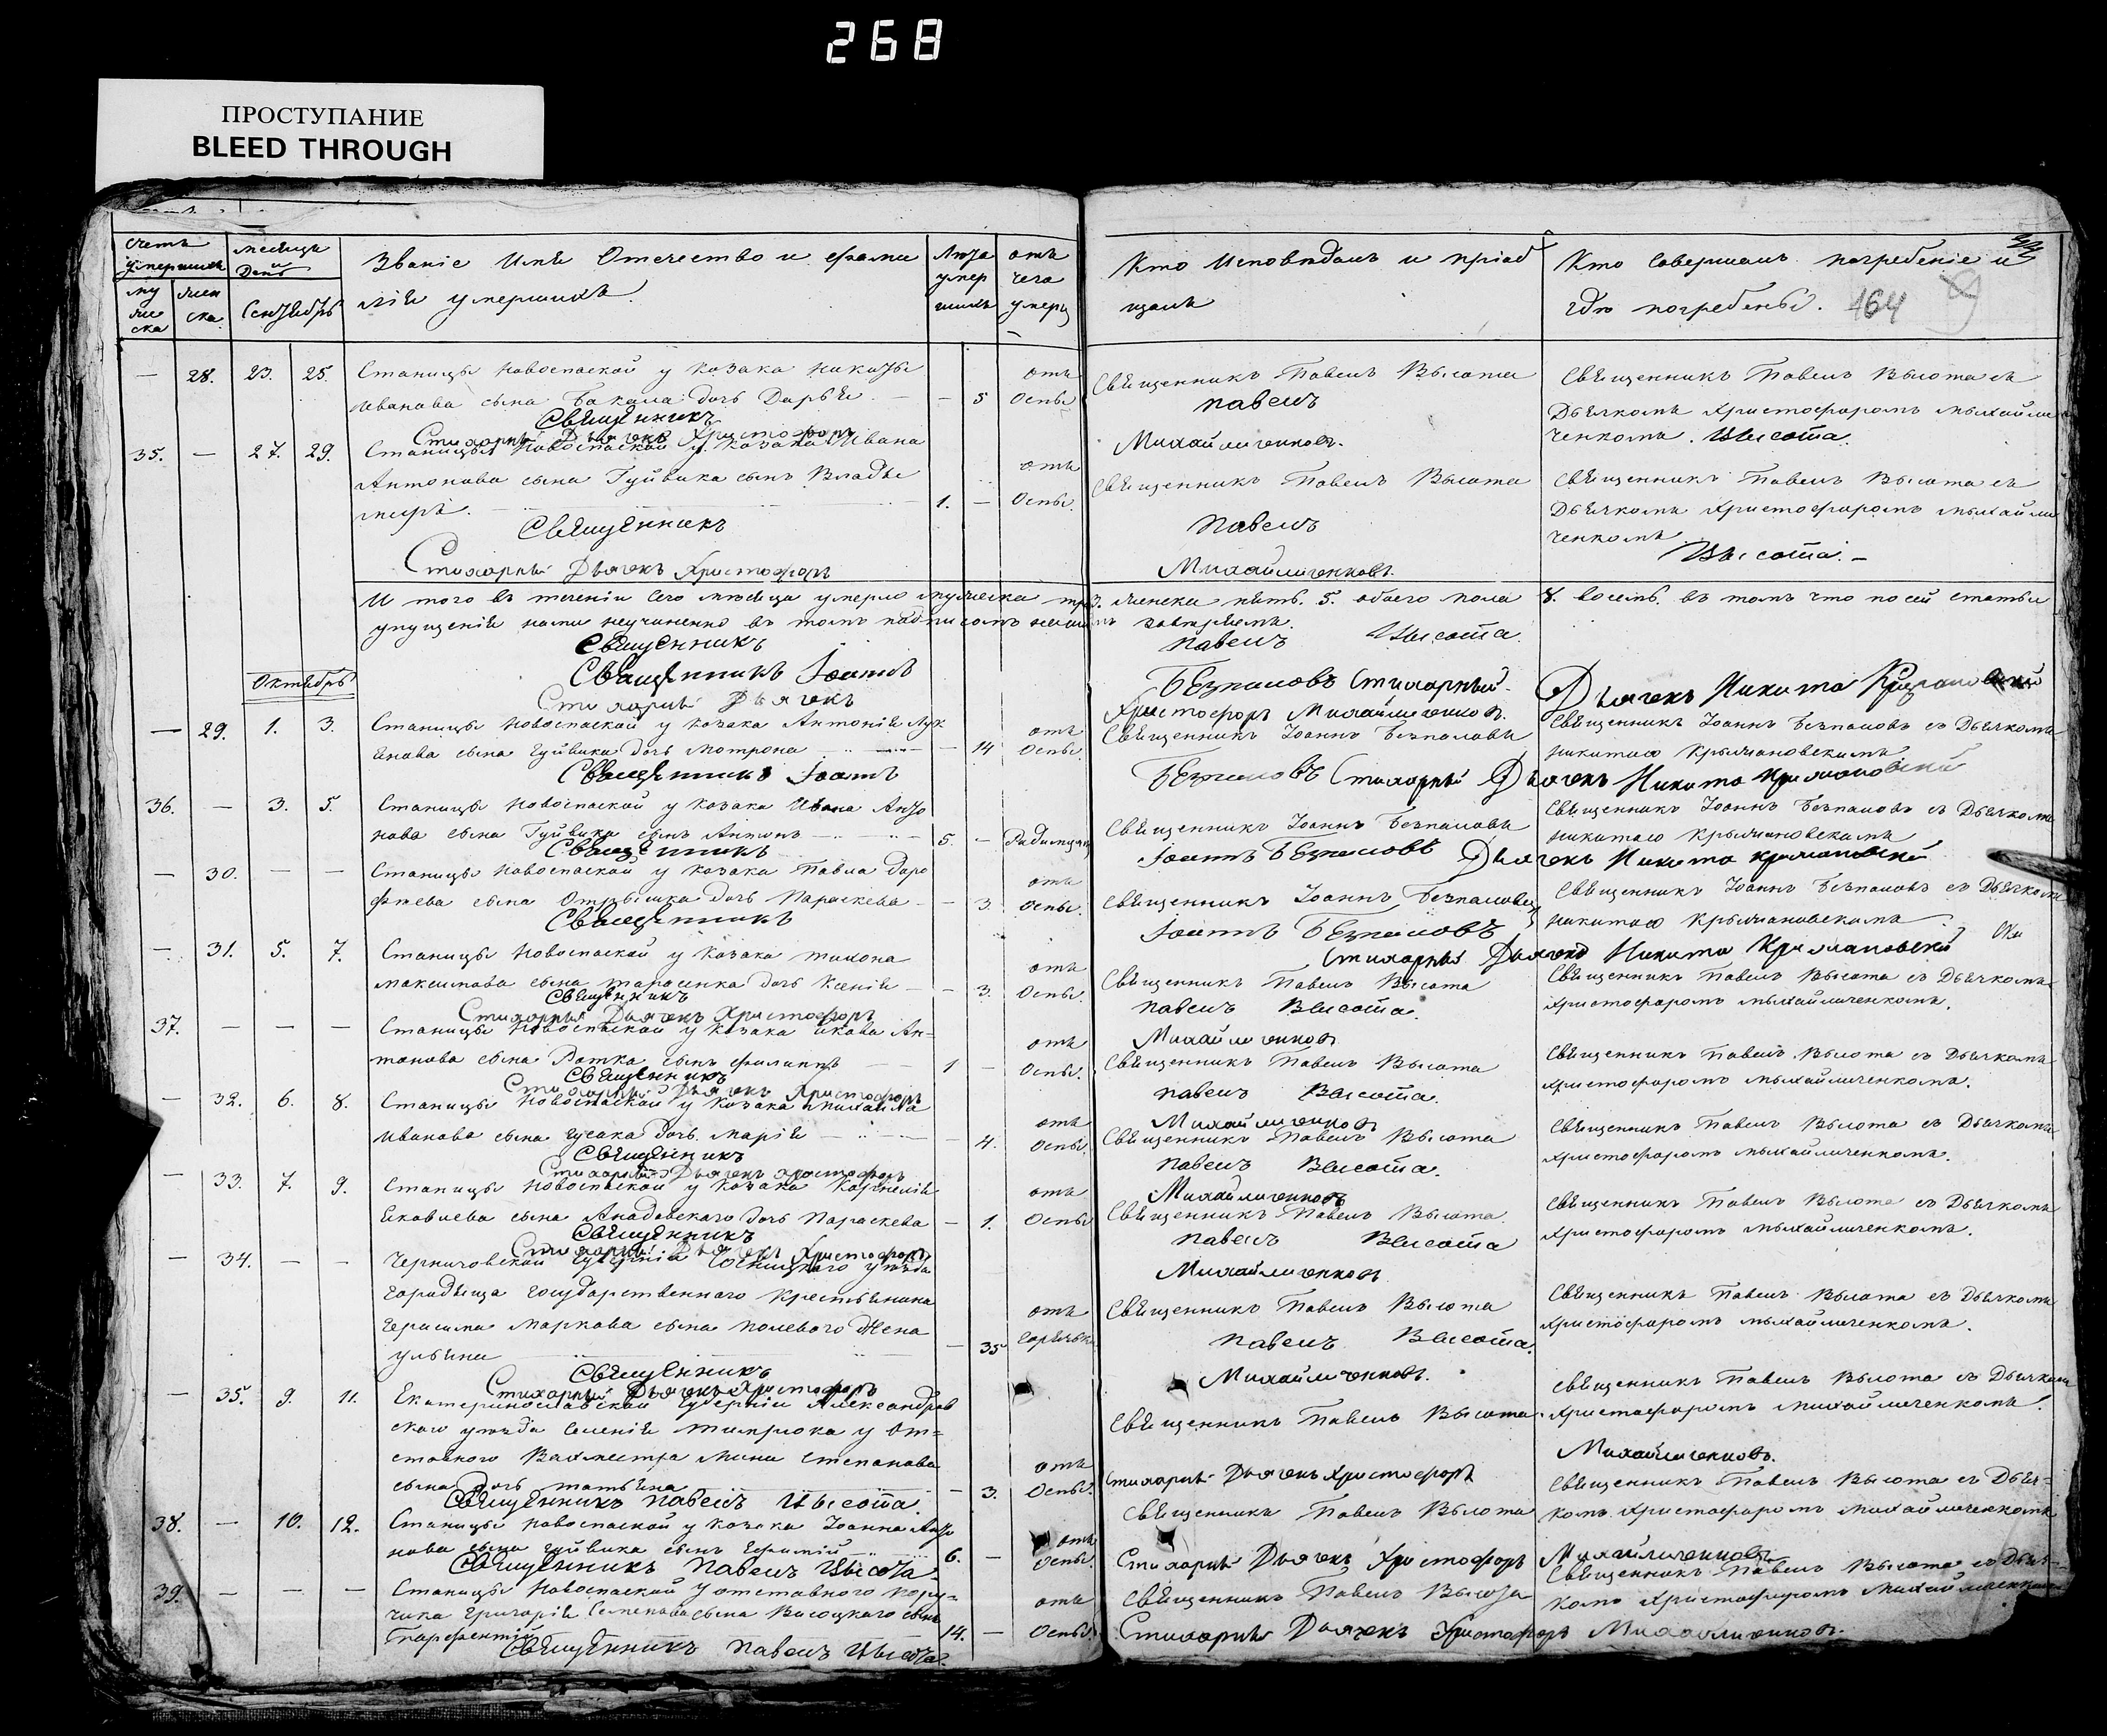 268
ПРОСТУПАНИЕ
BLEED THROUGH
Счетъ умершихъ
мужеска женска
месяцъ и День
Сентябрь
Званіе Имя Отечество и фами
лія умершихъ.
Лѣта умер шихъ
отъ чего умеръ
Кто Исповѣдалъ и пріоб
щалъ
Кто Совершалъ погребеніе и
гдѣ погребены.
164
— 28. 23. 25. Станицы Новоспаской у козака Никиты
Иванова сына Бакала дочь Дарья — 5 отъ Оспы
Священникъ Павелъ Высота
Священникъ Павелъ Высота съ
Дьячкомъ Христофоромъ Михайли
ченкомъ.
Священникъ Павелъ Высота
Стихарный Дьячекъ Христофоръ Михайличенковъ.
35. — 27. 29. Станицы Новоспаской у козака Ивана
Антонова сына Гуйвика сынъ Влади
миръ. 1. — отъ Оспы.
Священникъ Павелъ Высота
Священникъ Павелъ Высота съ
Дьячкомъ Христофоромъ Михайли
ченкомъ.
Священникъ Павелъ Высота. —
Стихарный Дьячекъ Христофоръ Михайличенковъ.
И того въ теченіи сего месяца умерло мужеска три 3. женска пять. 5. обоего пола 8. восемь. въ томъ что по сей статьи
упущенія нами неучиненно въ томъ подписомъ нашимъ завѣряемъ.
Священникъ Павелъ Высота.
Священникъ Іоаннъ Безпаловъ Стихарный Дьячекъ Никита
Стихарный Дьячекъ Христофоръ Михайличенковъ.
Октябрь
— 29. 1. 3. Станицы Новоспаской у козака Антонія Лук
янова сына Гуйвика дочь Мотрона — 14 отъ Оспы.
Священникъ Іоаннъ Безпаловъ
Священникъ Іоаннъ Безпаловъ съ Дьячкомъ
Никитою
Священникъ Іоаннъ Безпаловъ Стихарный Дьячекъ Никита
36. — 3. 5. Станицы Новоспаской у козака Ивана Анто
нова сына Гуйвика сынъ Антонъ 5. —
Священникъ Іоаннъ Безпаловъ
Священникъ Іоаннъ Безпаловъ съ Дьячкомъ
Никитою
Священникъ Іоаннъ Безпаловъ Дьячекъ Никита
— 30. — — Станицы Новоспаской у козака Павла Доро
феева сына дочь Параскева — 3. отъ Оспы.
Священникъ Іоаннъ Безпаловъ
Священникъ Іоаннъ Безпаловъ съ Дьячкомъ
Никитою
Священникъ Іоаннъ Безпаловъ
Стихарный Дьячекъ Никита
— 31. 5. 7. Станицы Новоспаской у козака Тихона
Максимова сына Тарасенка дочь Ксенія — 3. отъ Оспы.
Священникъ Павелъ Высота
Священникъ Павелъ Высота съ Дьячкомъ
Христофоромъ Михайличенкомъ.
Священникъ Павелъ Высота.
Стихарный Дьячекъ Христофоръ Михайличенковъ
37. — — — Станицы Новоспаской у козака Якова Ан=
тонова сына сынъ Филиппъ 1 — отъ Оспы.
Священникъ Павелъ Высота
Священникъ Павелъ Высота съ Дьячкомъ
Христофоромъ Михайличенкомъ.
Священникъ Павелъ Высота.
Стихарный Дьячекъ Христофоръ Михайличенковъ
— 32. 6. 8. Станицы Новоспаской у козака Михаила
Иванова сына Гусака дочь Марія — 4. отъ Оспы.
Священникъ Павелъ Высота
Священникъ Павелъ Высота съ Дьячкомъ
Христофоромъ Михайличенкомъ.
Священникъ Павелъ Высота.
Стихарный Дьячекъ Христофоръ Михайличенковъ
— 33. 7. 9. Станицы Новоспаской у козака Корнелія
Яковлева сына дочь Параскева — 1. отъ Оспы
Священникъ Павелъ Высота.
Священникъ Павелъ Высота съ Дьячкомъ
Христофоромъ Михайличенкомъ.
Священникъ Павелъ Высота
Стихарный Дьячекъ Христофоръ Михайличенковъ
— 34. — — Черниговской Губерніи Сосницкого уѣзда
Городища государственного крестьянина
Герасима Маркова сына Полевого Жена
Ульяна — 35 отъ горячьки
Священникъ Павелъ Высота
Священникъ Павелъ Высота съ Дьячкомъ
Христофоромъ Михайличенкомъ.
Священникъ Павелъ Высота.
Стихарный Дьячекъ Христофоръ Михайличенковъ.
— 35. 9. 11. Екатеринославской Губерніи Александров
ского уѣзда Селенія Темрюка у От=
ставного Вахмистра Мины Степанова
сына дочь Татьяна — 3. отъ Оспы.
Священникъ Павелъ Высота.
Священникъ Павелъ Высота съ Дьячкомъ
Христофоромъ Михайличенкомъ.
Священникъ Павелъ Высота. Стихарный Дьячекъ Христофоръ Михайличенковъ.
38. — 10. 12. Станицы Новоспаской у козака Іоанна Анто
нова сына Гуйвика сынъ 6. — отъ Оспы.
Священникъ Павелъ Высота
Священникъ Павелъ Высота съ Дьяч=
комъ Христофоромъ Михайличенкомъ
Священникъ Павелъ Высота Стихарный Дьячекъ Христофоръ Михайличенковъ.
39. — — — Станицы Новоспаской у отставного пору=
чика Григорія Семенова сына Висоцкаго сынъ
Парфентій 14. — отъ Оспы.
Священникъ Павелъ Высота
Священникъ Павелъ Высота съ Дьяч=
комъ Христофоромъ Михайличенкомъ
Священникъ Павелъ Высота. Стихарный Дьячекъ Христофоръ Михайличенковъ.